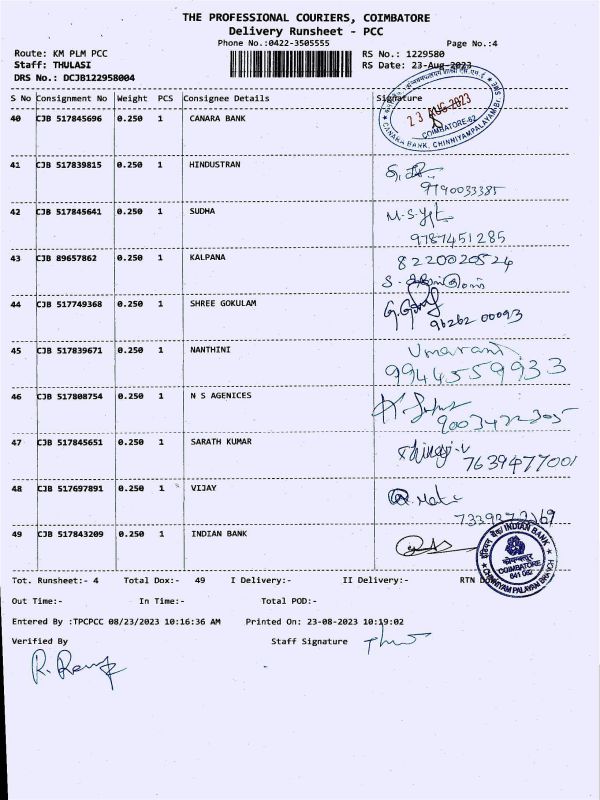 THE PROFESSIONAL COURIERS, COIMBATORE
Delivery Runsheet - PCC
Phone No.:0422-3505555
Page No.:4
Route: KM PLM PCC
RS No.: 1229580
Staff: THULASI
RS Date: 23-Aug-2023
DRS No.: DCJB122958004
S No Consignment No Weight PCS Consignee Details Signature
40 CJB 517845696 0.250 1 CANARA BANK
23 AUG 2023
COIMBATORE-62
CANARA BANK, CHINNIYAMPALAYAM-BR
41 CJB 517839815 0.250 1 HINDUSTRAN
9790033385
42 CJB 517845641 0.250 1 SUDHA
9787451285
43 CJB 89657862 0.250 1 KALPANA
8220020524
44 CJB 517749368 0.250 1 SHREE GOKULAM
96262 00093
45 CJB 517839671 0.250 1 NANTHINI
Umarani
9944559933
46 CJB 517808754 0.250 1 N S AGENICES
9003422305
47 CJB 517845651 0.250 1 SARATH KUMAR
7639477001
48 CJB 517697891 0.250 1 VIJAY
49 CJB 517843209 0.250 1 INDIAN BANK
इंडियन बैंक INDIAN BANK
कोयम्बत्तूर
COIMBATORE
641 062
CHINNIYAM PALAYAM BRANCH
Tot. Runsheet:- 4 Total Dox:- 49 I Delivery:- II Delivery:- RTN
Out Time:- In Time:- Total POD:-
Entered By :TPCPCC 08/23/2023 10:16:36 AM Printed On: 23-08-2023 10:19:02
Verified By Staff Signature